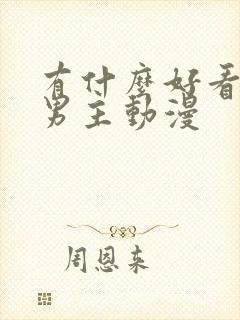 有什麼好看
男主動漫
周恩来